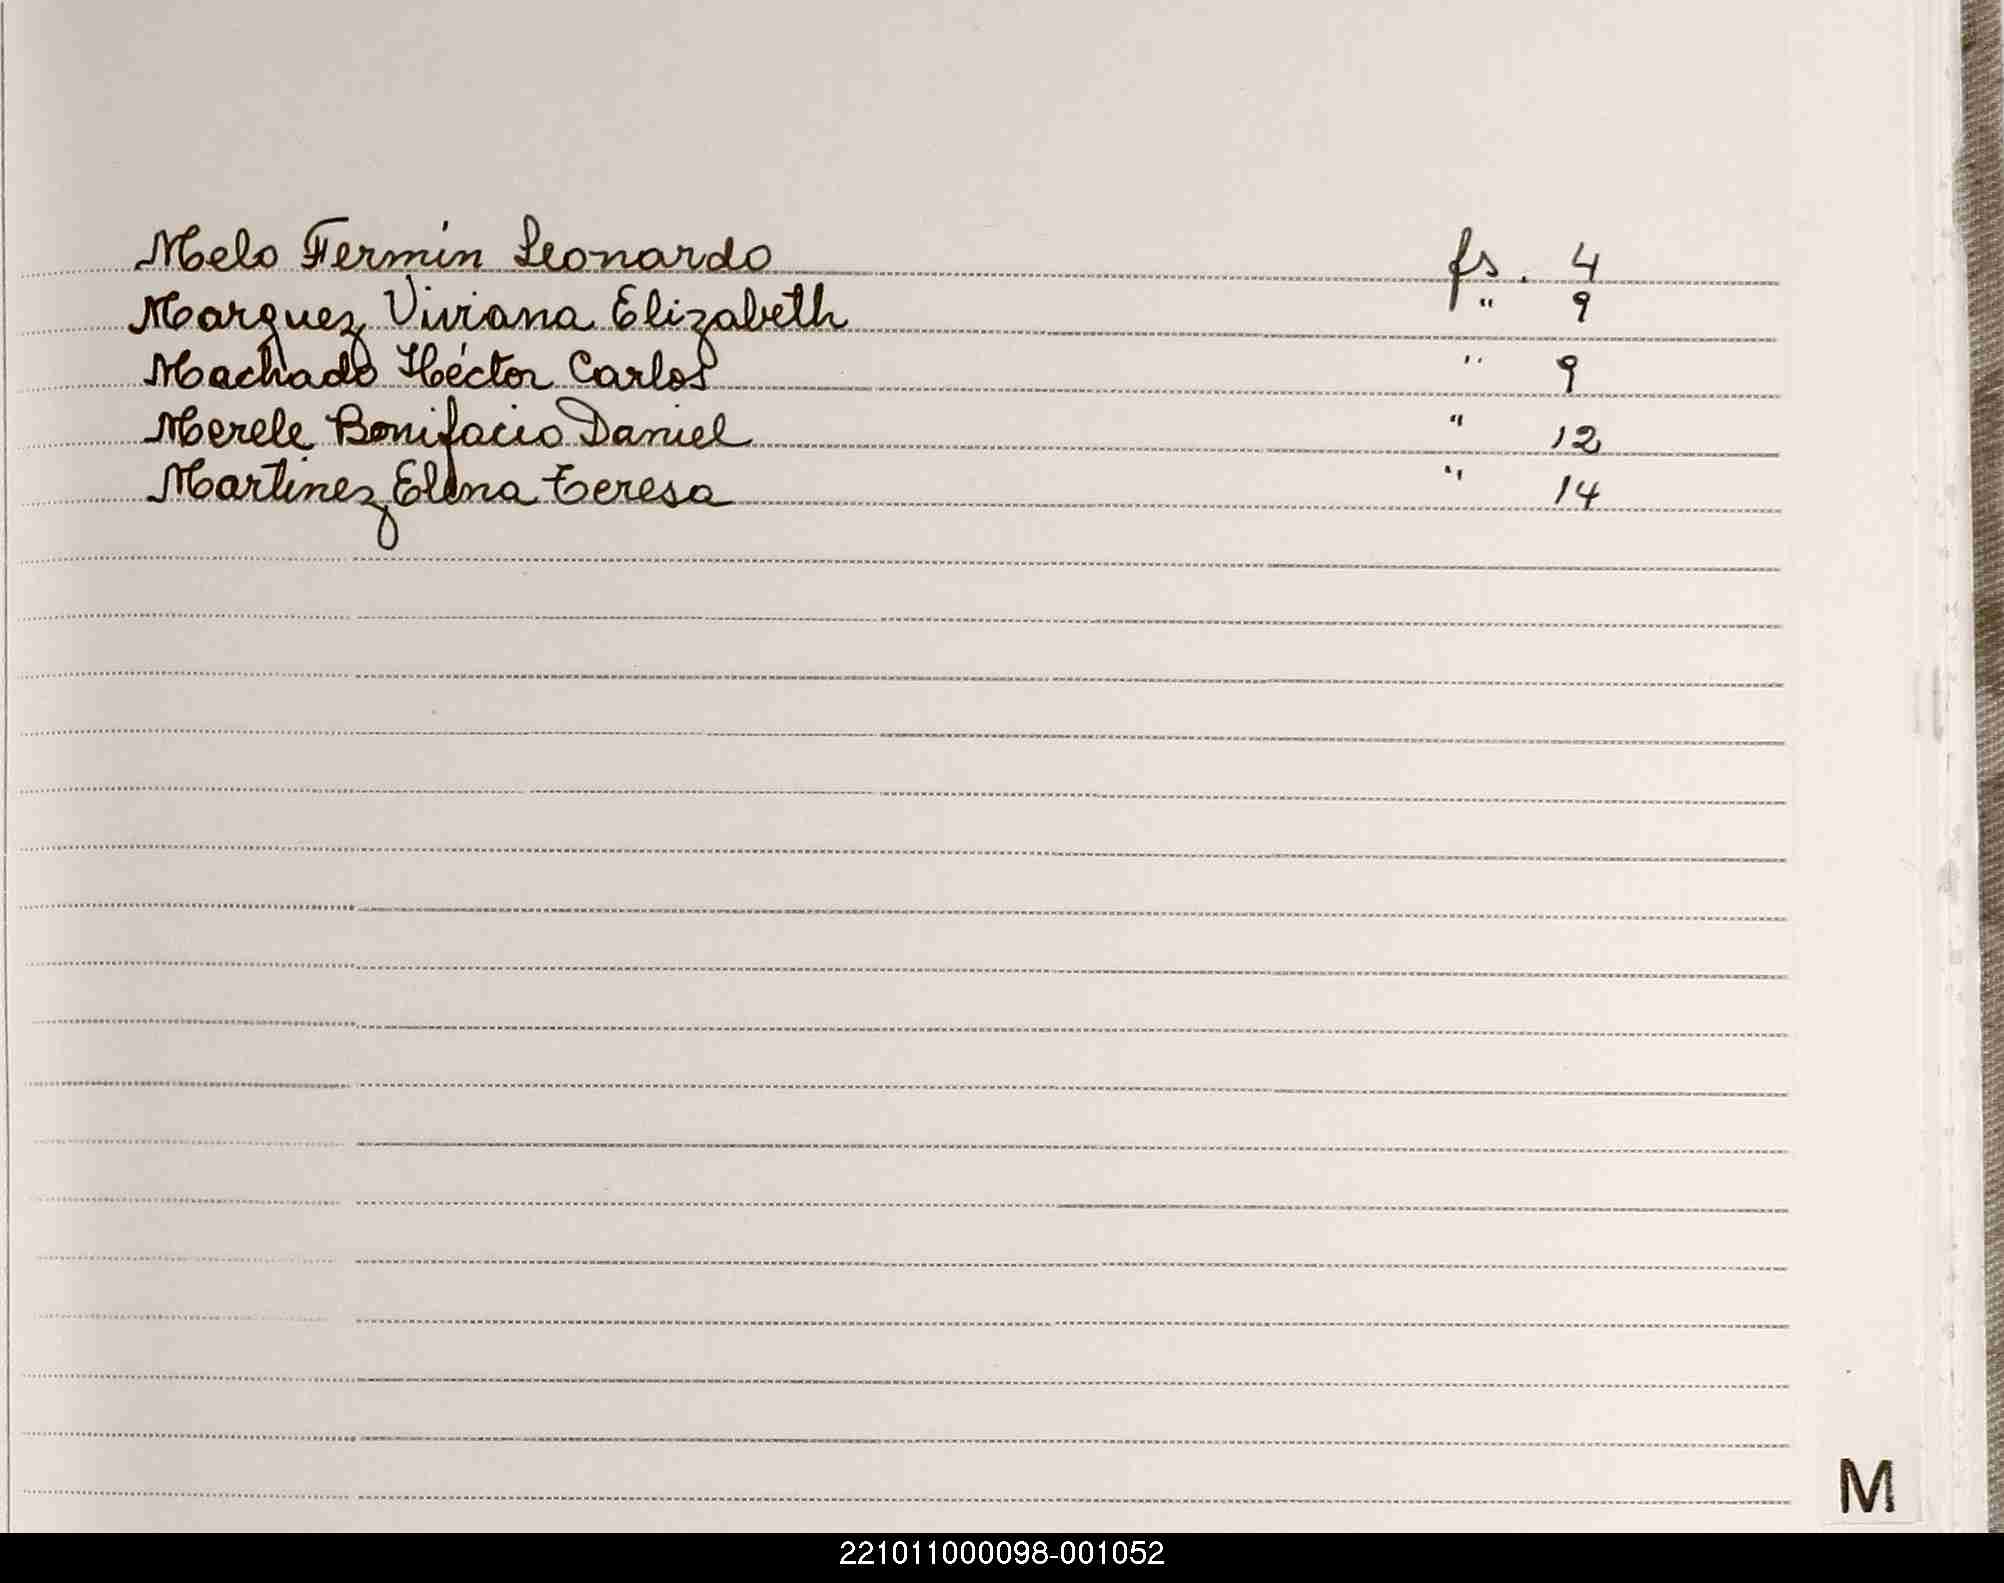 Melo Fermín Leonardo fs. 4
Marquez Viviana Elizabeth " 9
Machado Héctor Carlos " 9
Merele Bonifacio Daniel " 12
Martinez Elena Teresa " 14
M
221011000098-001052